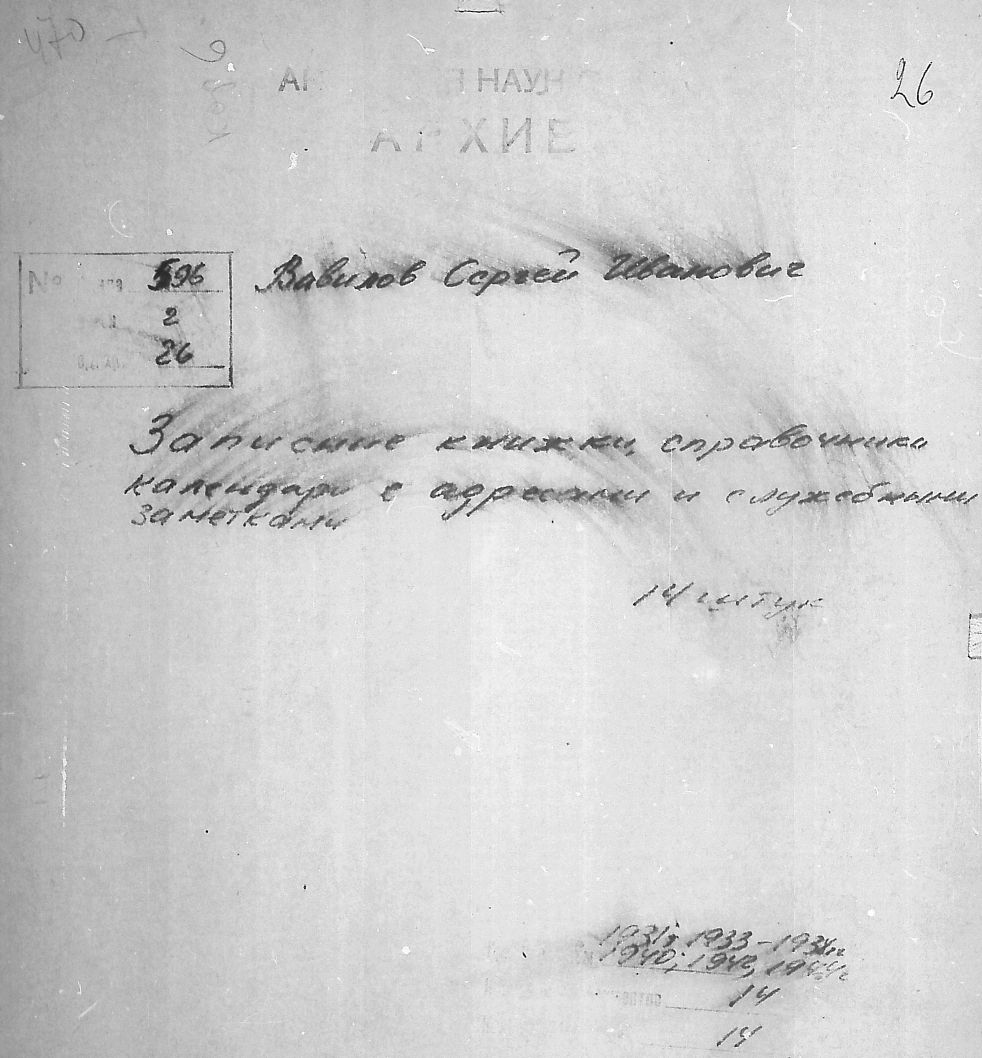 26
АРХИВ
№ 596
2
26
Вавилов Сергей Иванович
Записные книжки, справочники
календари с адресами и служебными
заметками
14 штук
1931г, 1933-1934гг
1940; 1942, 1944г
14
14